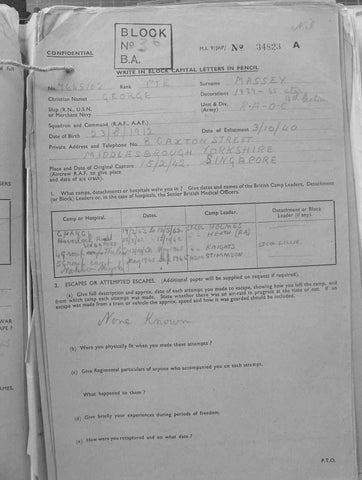 BLOCK
No 36
B.A.
CONFIDENTIAL
M.I. 9/JAP/ No 34823 A
WRITE IN BLOCK CAPITAL LETTERS IN PENCIL
No. Rank PTE Surname MASSEY
Christian Names GEORGE Decorations 1939-45
Ship (R.N., U.S.N.
or Merchant Navy
Unit & Div.
(Army) R.A.O.C
Squadron and Command (R.A.F., A.A.F.)
Date of Birth 23/8/1912 Date of Enlistment 3/10/40
Private Address and Telephone No. 8 CAXTON STREET
MIDDLESBROUGH YORKSHIRE
Place and Date of Original Capture 15/2/42 SINGAPORE
(Aircrew R.A.F. to give place
and date of a/c crash).
1. What camps, detachments or hospitals were you in? Give dates and names of the British Camp Leaders, Detachment
(or Block) Leaders or, in the case of Hospitals, the Senior British Medical Officers.
Camp or Hospital. Dates. Camp Leader. Detachment or Block
Leader (if any).
CHANGI HOLMES
HEATH (RA)
KNIGHTS
STIMMSON
2. ESCAPES OR ATTEMPTED ESCAPES. (Additional paper will be supplied on request if required).
(a) Give full description and approx. date of each attempt you made to escape, showing how you left the camp, and
from which camp each attempt was made. State whether there was an air-raid in progress at the time or not. If an
escape was made from a train or vehicle the approx. speed and how it was guarded should be included.
None Known
(b) Were you physically fit when you made these attempts?
(c) Give Regimental particulars of anyone who accompanied you on each attempt.
What happened to them?
(d) Give briefly your experiences during periods of freedom.
(e) How were you recaptured and on what date?
P.T.O.